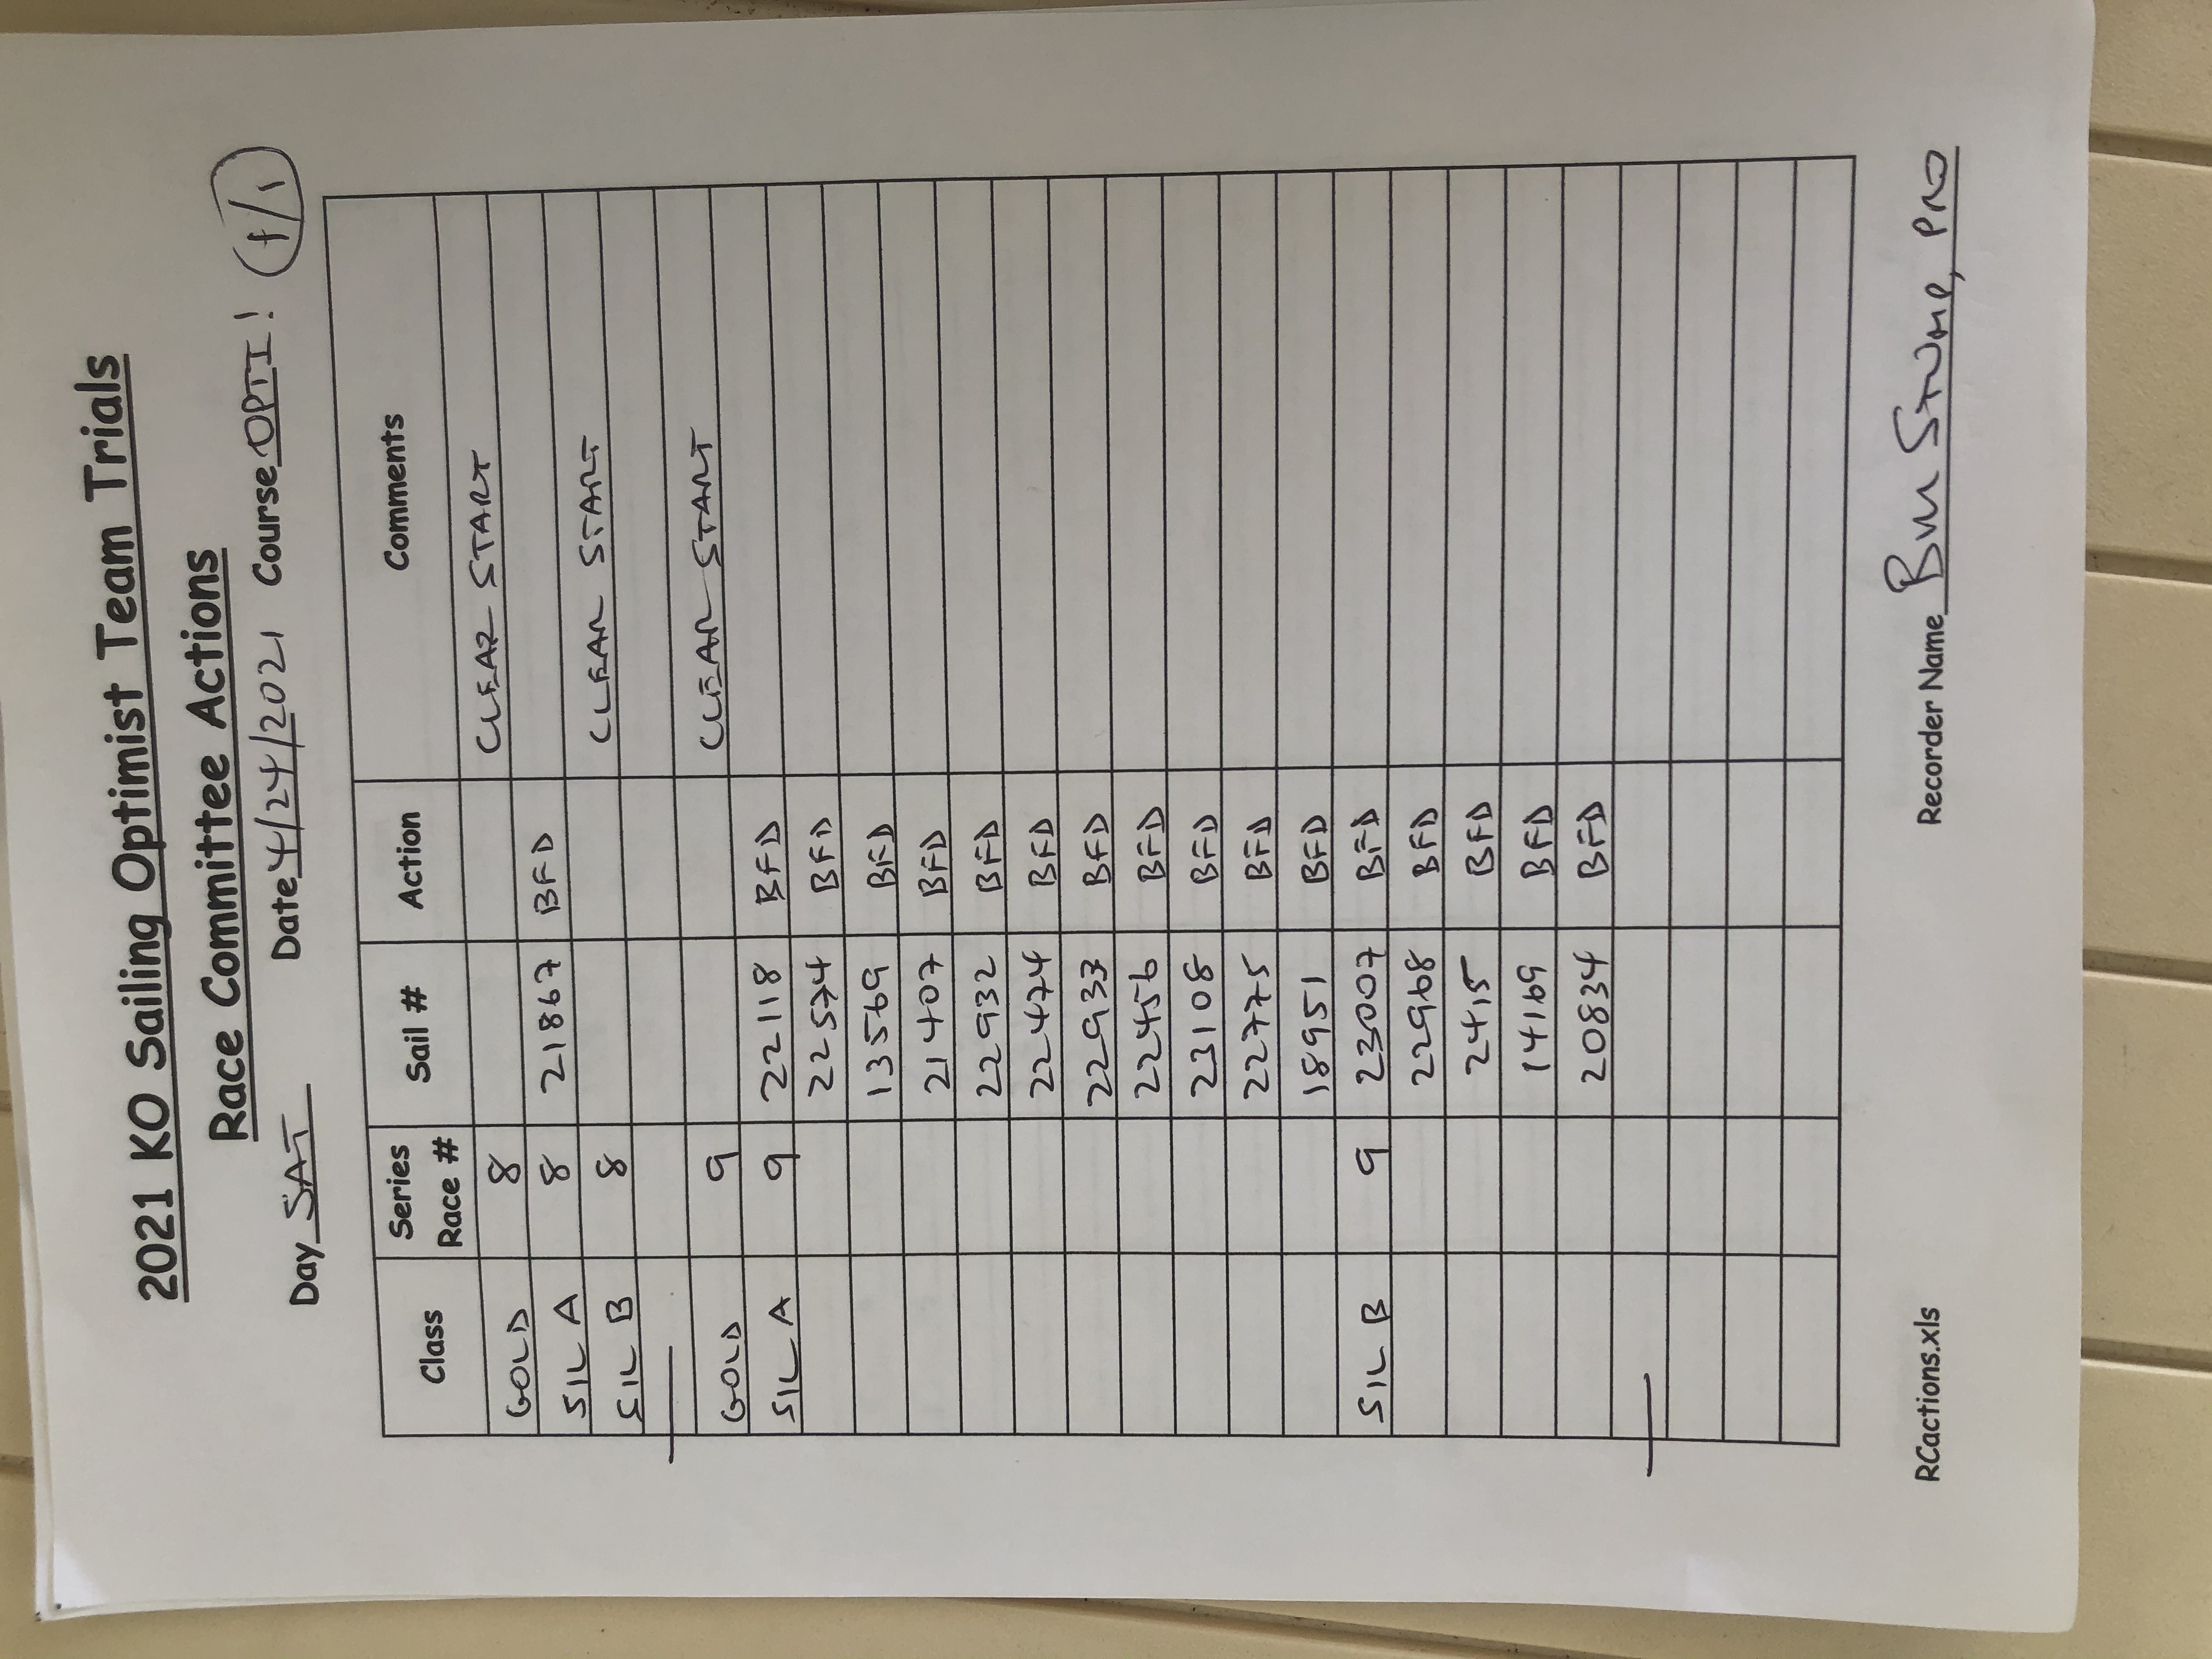 2021 KO Sailing Optimist Team Trials
Race Committee Actions
Day SAT Date 4/24/2021 Course OPTI! 1/1
Class Series Race # Sail # Action Comments
GOLD 8 CLEAR START
SIL A 8 21867 BFD
SIL B 8 CLEAR START
GOLD 9 CLEAR START
SIL A 9 22118 BFD
22574 BFD
13569 BFD
21407 BFD
22932 BFD
22474 BFD
22933 BFD
22456 BFD
23108 BFD
22775 BFD
18951 BFD
SIL B 9 23007 BFD
22968 BFD
2415 BFD
14169 BFD
20834 BFD
RCactions.xls Recorder Name Bill Stump, PRO